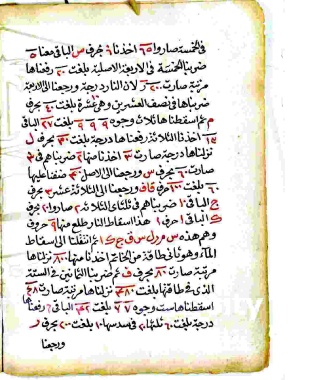 في الخمسة صاروا ٦٥ اخذنا ٦ بحرف س الباقي معنا ٥
ضربنا الخمسة في الاربعة الاصلية بلغت ٢٠ رفعناها
مرتبة صارت لان النار درجة ورجعنا الى الدرجة
ضربناها في نصف العشرين وهي عشرة بلغت ٤٠ بحرف
م ثم اسقطناها ثلاث وجوه ٩ ٩ ٩ بلغت ٢٧ الباقي
١٣ اخذنا الثلاثة رفعناها درجة بلغت ٣٠ بحرف ل
نزلناها درجة صارت ٣ اخذنا منها ٢ ضربناهم في ٣
صارت ٦ بحرف س ورجعنا الى الاصل ضفنا عليها
٦٠ بلغت ١٠٠ حرف قاف ورجعنا الى الثلاثة عشر ٣ بحرف
ج الباقي ١ ضربناهم في ثلثاي الثلاثة ٢ صاروا ٢٠ بحرف
ك الباقي ١ حرف ١ هذا اسقاط النار طلع منها ٩ حروف
وهم هذه س م ر ل س ق ج ك ا ثم انتقلنا الى اسقاط
الماء وهو ثاني طاقة من الخاتم اخذنا منها ٨٠ نزلناها
مرتبة صارت ٨٠ بحرف ف ثم ضربنا الثمانين في الستة
الذي في طاقتها بلغت ٤٨٠ نزلناها مرتبة صارت ٤٨
اسقطناها ست وجوه بلغت الباقي ٦ رفعناها
درجة بلغت ٦٠ ثلثها ٢٠ في سدسها ١٠ بلغت ٢٠٠ بحرف ر
ورجعنا